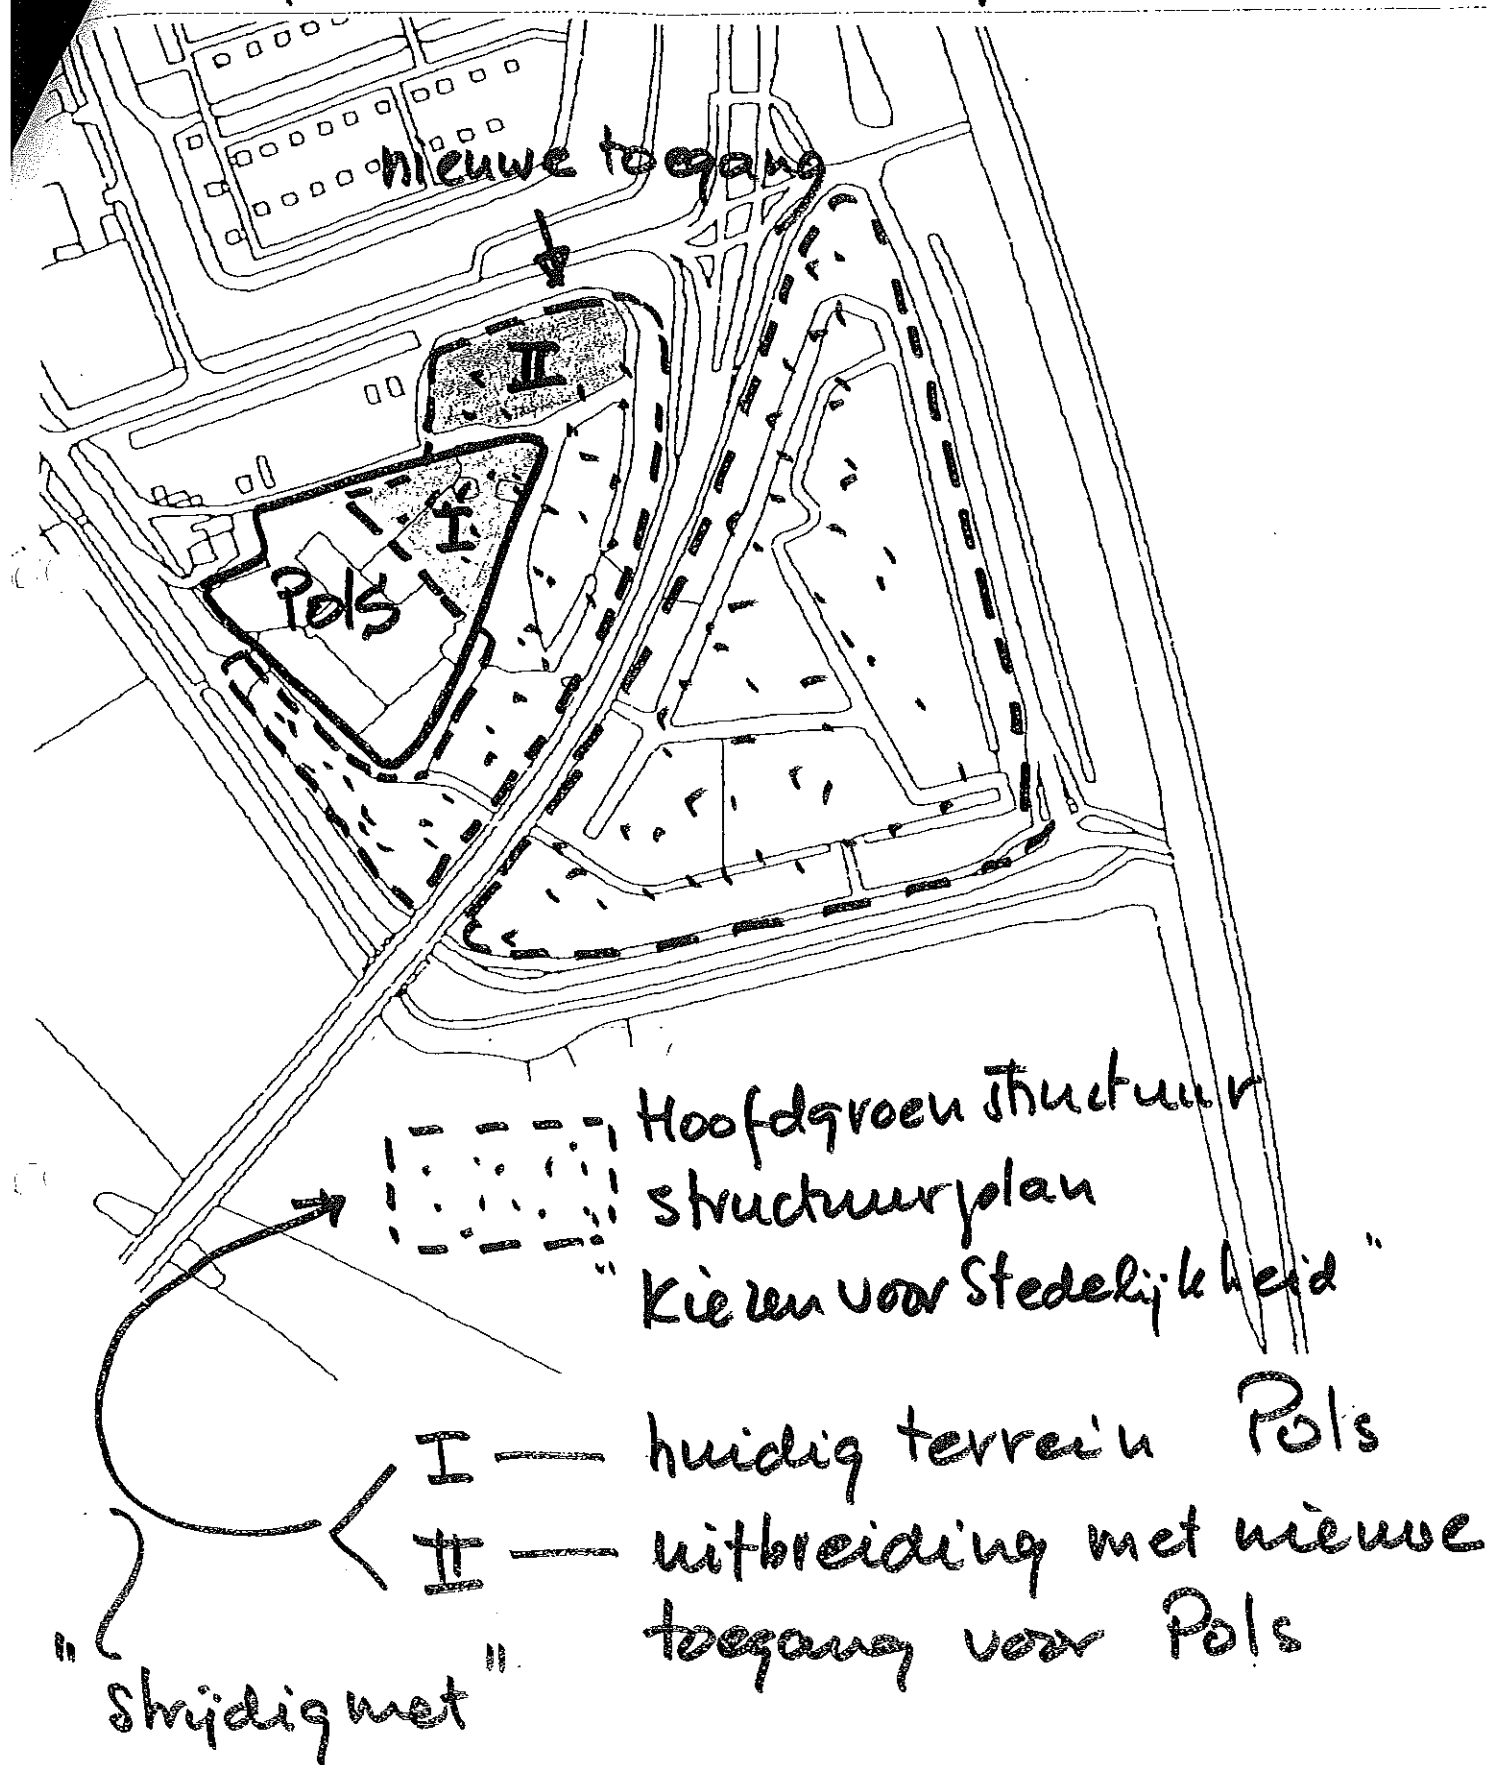 nieuwe toegang
II
I
Pols
Hoofdgroenstructuur
structuurplan
"Kiezen voor Stedelijkheid"
I — huidig terrein Pols
II — uitbreiding met nieuwe
toegang voor Pols
"strijdig met"